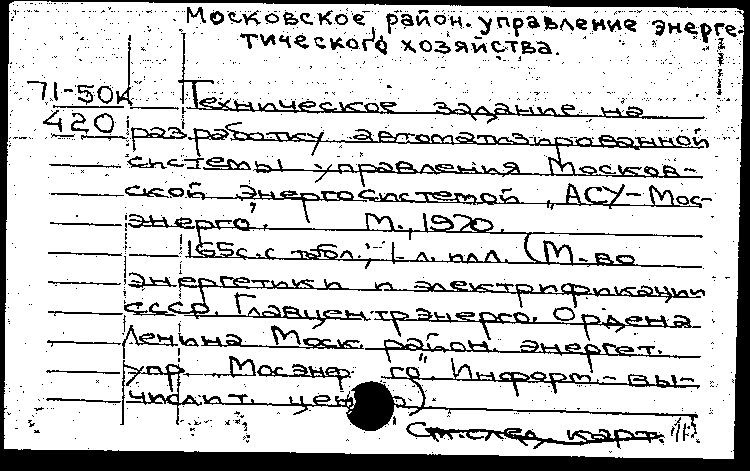 Московское район. управление энерге-
тического хозяйства.
71-50к Техническое задание на
420 разработку автоматизированной
системы управления Москов-
ской энергосистемой „АСУ-Мос-
энерго". М., 1970.
165 с. с табл.; 1 л. илл. (М-во
энергетики и электрификации
СССР. Главцентрэнерго. Ордена
Ленина Моск. район. энергет.
упр. „Мосэнерго". Информ.-вы-
числит. центр.)
См. след. карт.